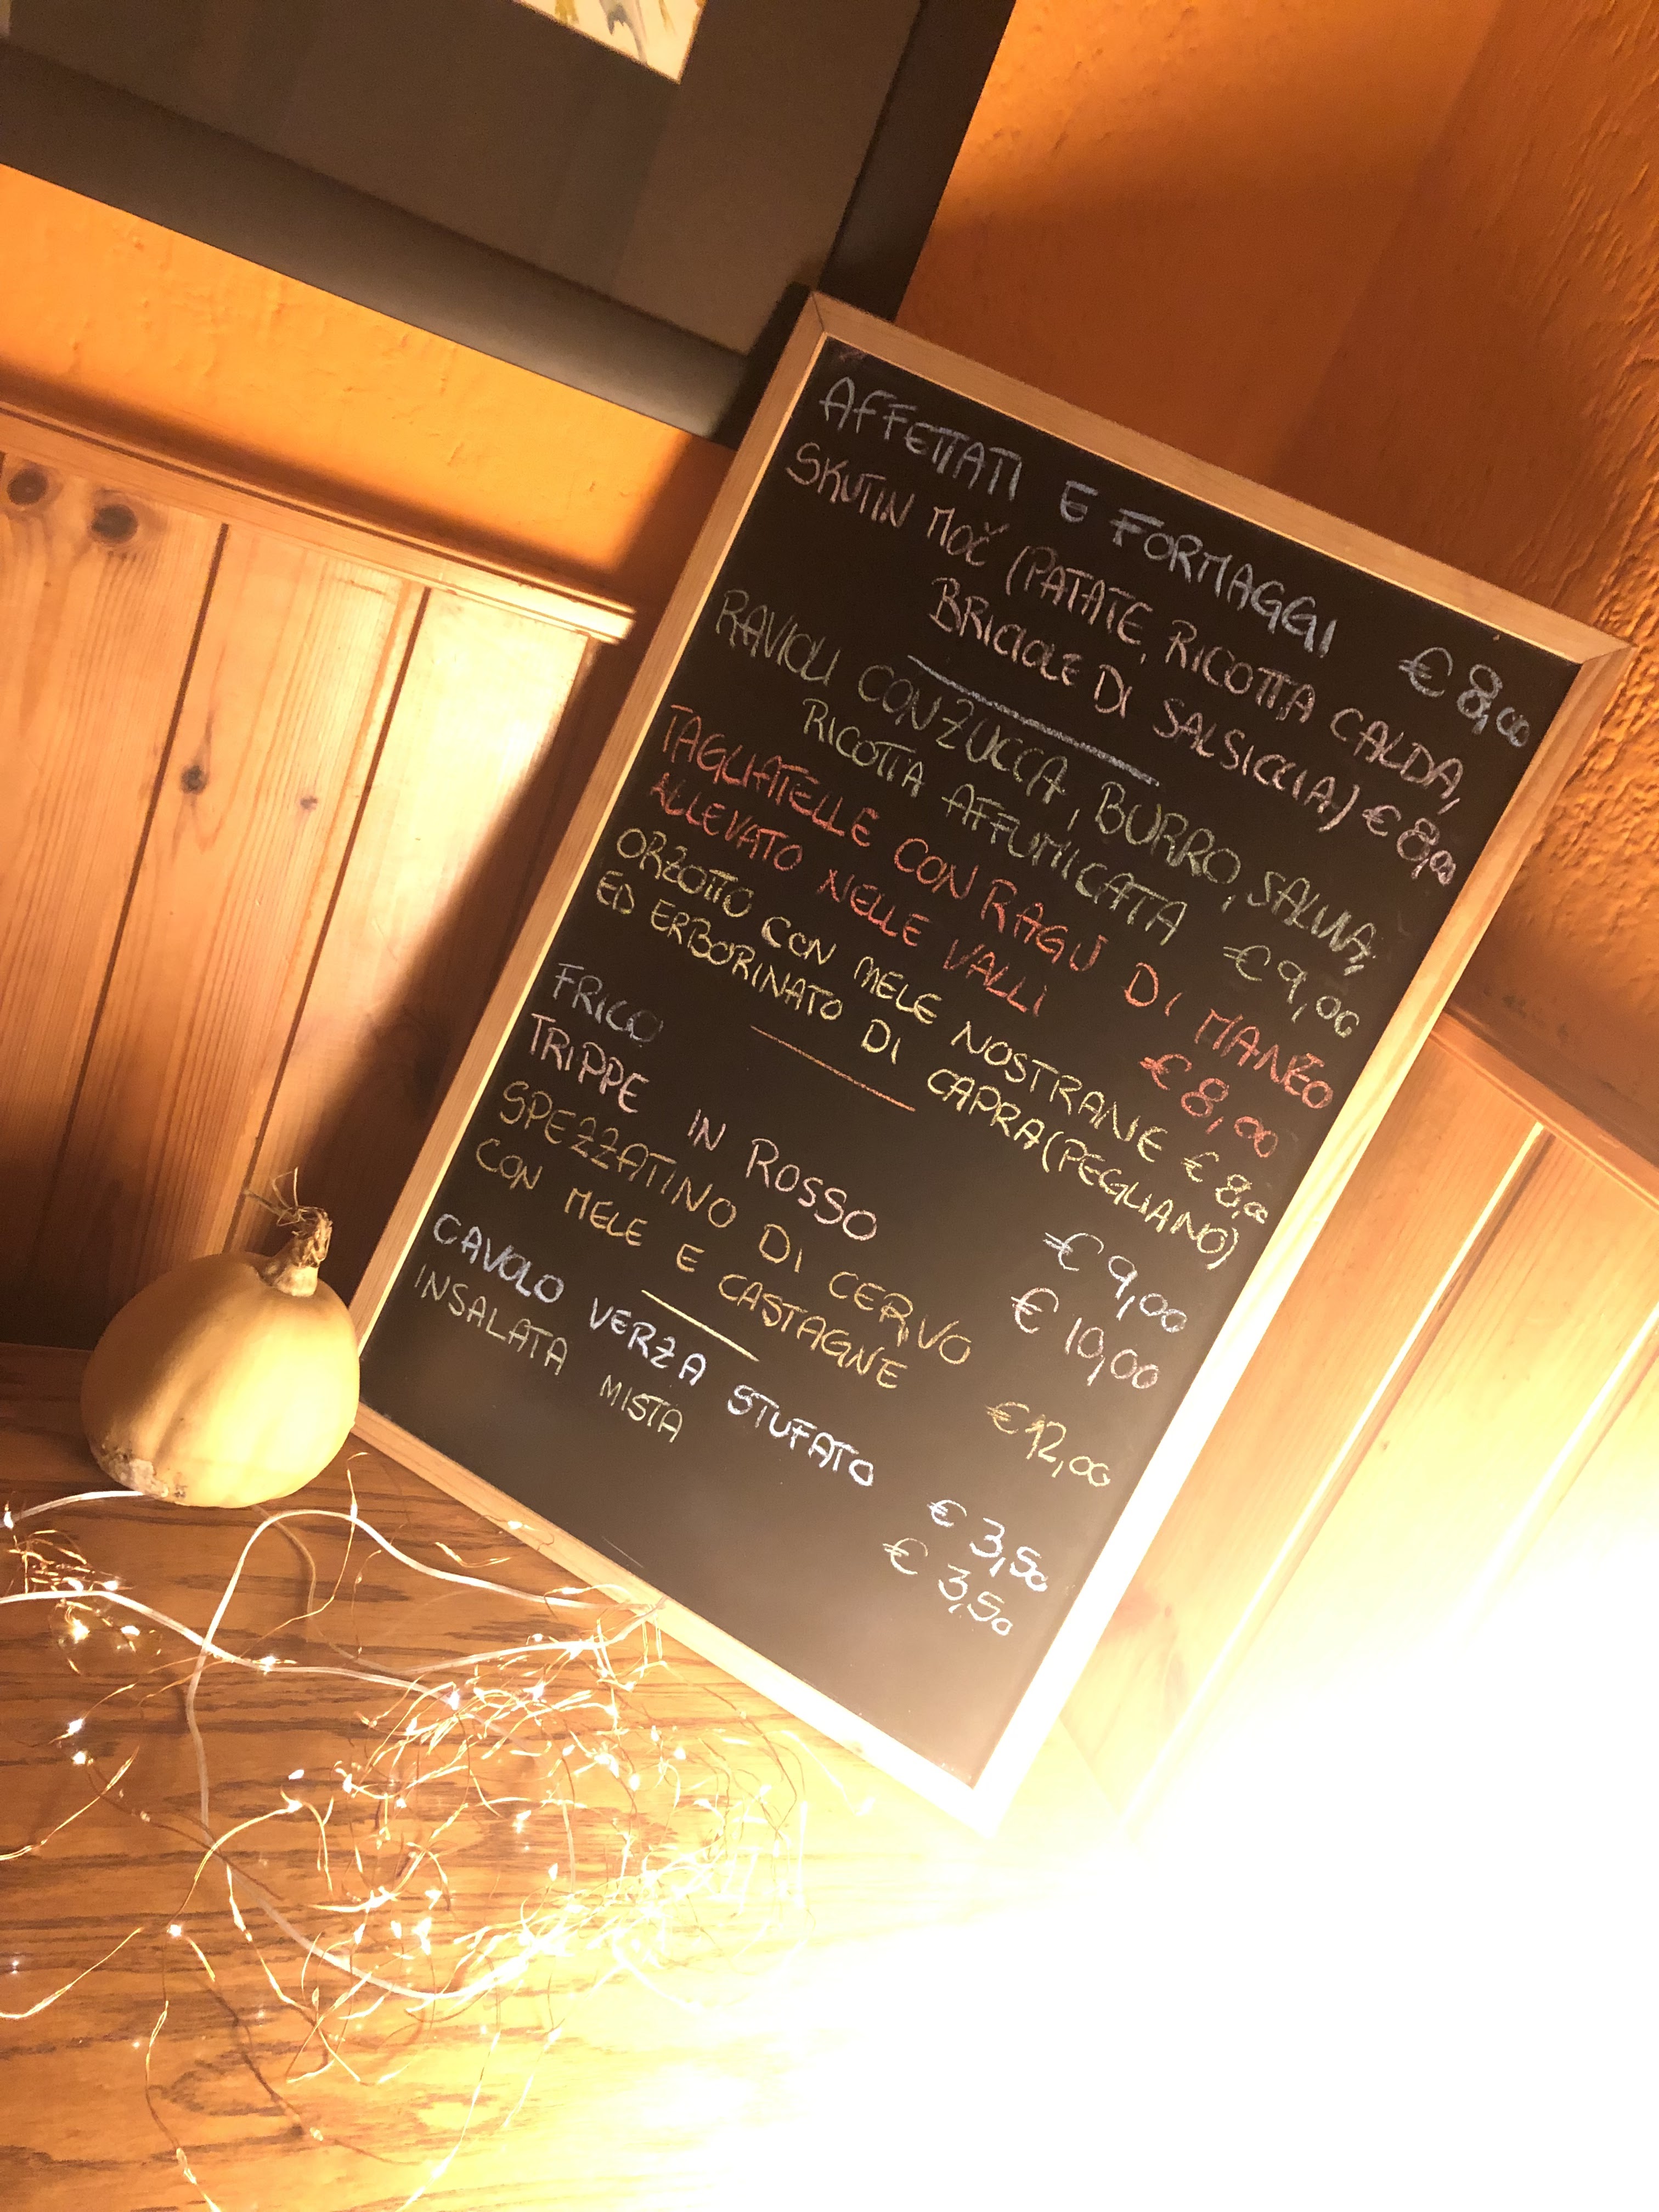 AFFETTATI E FORMAGGI € 8,00
SKUTIN MOČ (PATATE, RICOTTA CALDA,
BRICIOLE DI SALSICCIA) € 8,00
RAVIOLI CON ZUCCA, BURRO, SALVIA,
RICOTTA AFFUMICATA € 9,00
TAGLIATELLE CON RAGÙ DI MANZO
ALLEVATO NELLE VALLI € 8,00
ORZOTTO CON MELE NOSTRANE € 8,00
ED ERBORINATO DI CAPRA (PEGLIANO)
FRICO € 9,00
TRIPPE IN ROSSO € 10,00
SPEZZATINO DI CERVO
CON MELE E CASTAGNE € 12,00
CAVOLO VERZA STUFATO € 3,50
INSALATA MISTA € 3,50